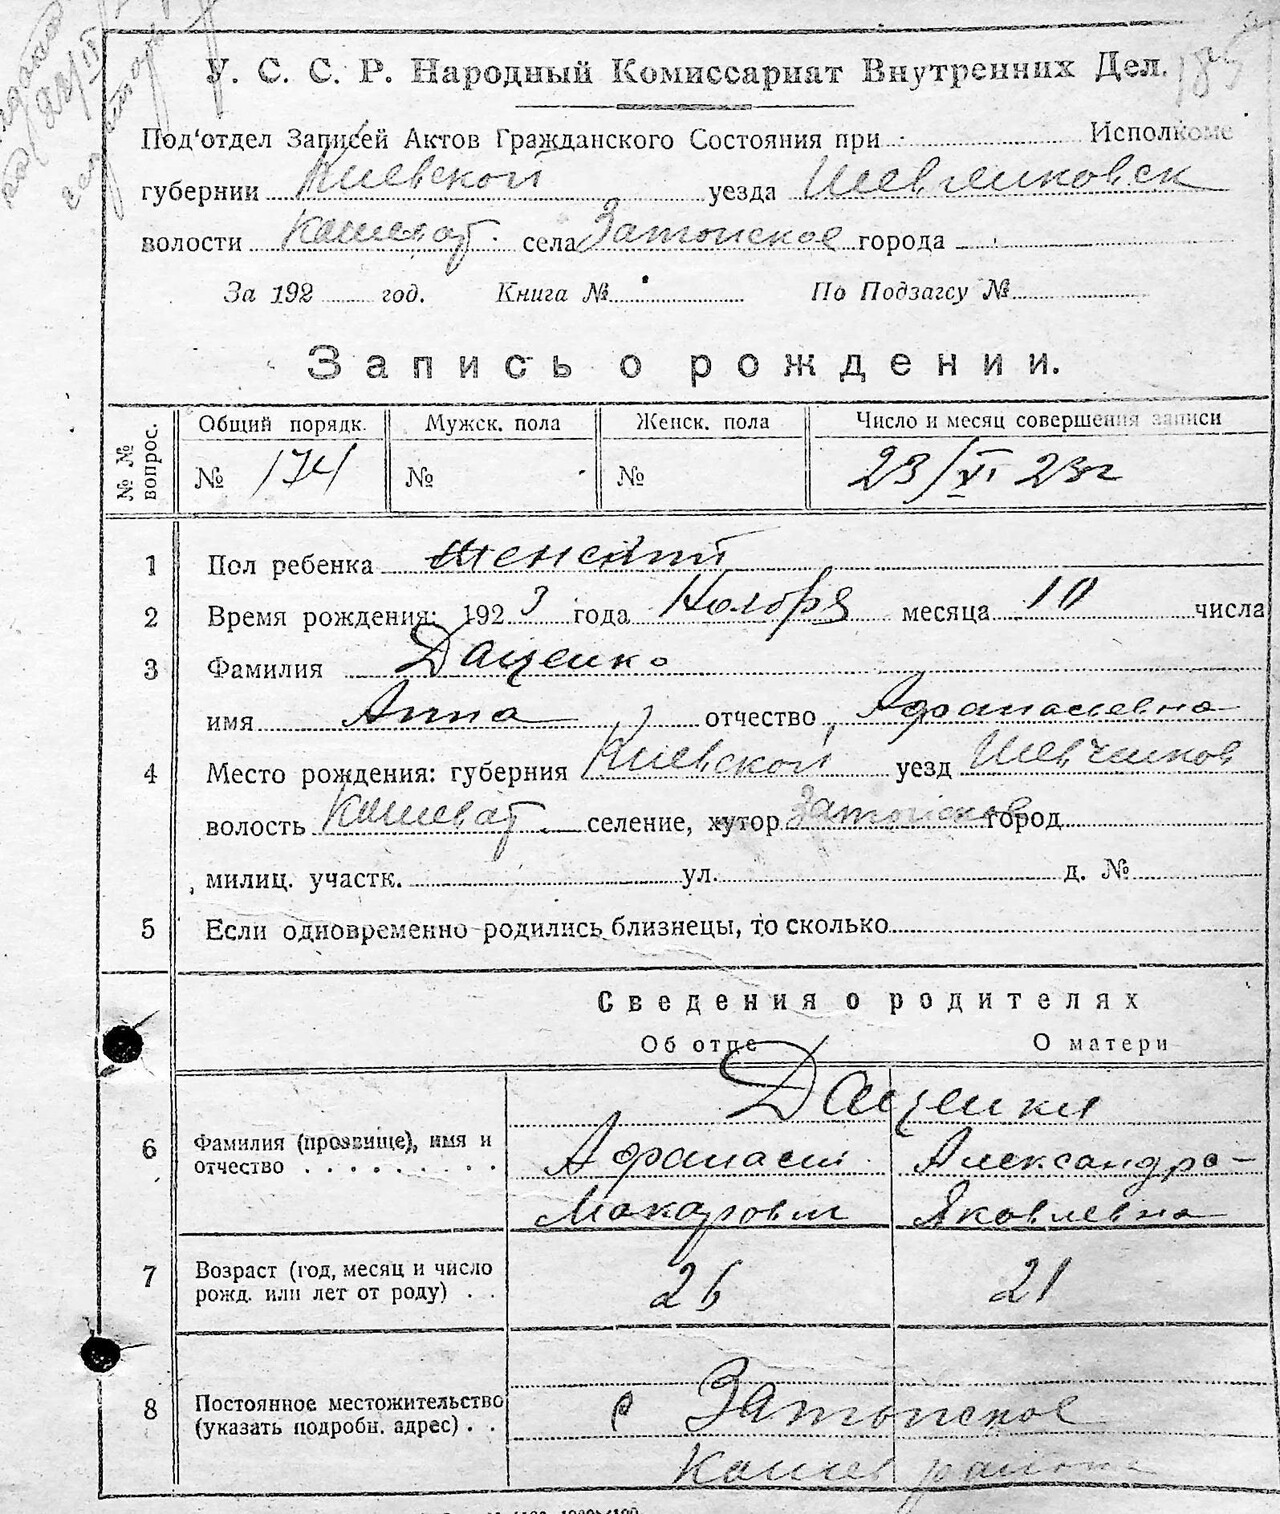 У. С. С. Р. Народный Комиссариат Внутренних Дел. 185
Под'отдел Записей Актов Гражданского Состояния при Исполкоме
губернии Киевской уезда Шевченковск
волости Кошеват. села Затонское города
За 192 год. Книга № По Подзагсу №
Запись о рождении.
№ № вопрос. Общий порядк. Мужск. пола Женск. пола Число и месяц совершения записи
№ 174 № № 23/XI 23г
1 Пол ребенка женский
2 Время рождения: 1923 года Ноября месяца 10 числа
3 Фамилия Даценко
имя Анна отчество Афанасиевна
4 Место рождения: губерния Киевской уезд Шевченков
волость Кошеват. селение, хутор Затонское город
милиц. участк. ул. д. №
5 Если одновременно родились близнецы, то сколько
Сведения о родителях
Об отце О матери
Даценки
6 Фамилия (прозвище), имя и отчество Афанасий Александра
Макарович Яковлевна
7 Возраст (год, месяц и число рожд. или лет от роду) 26 21
8 Постоянное местожительство (указать подробн. адрес) с Затонское
Кошев района